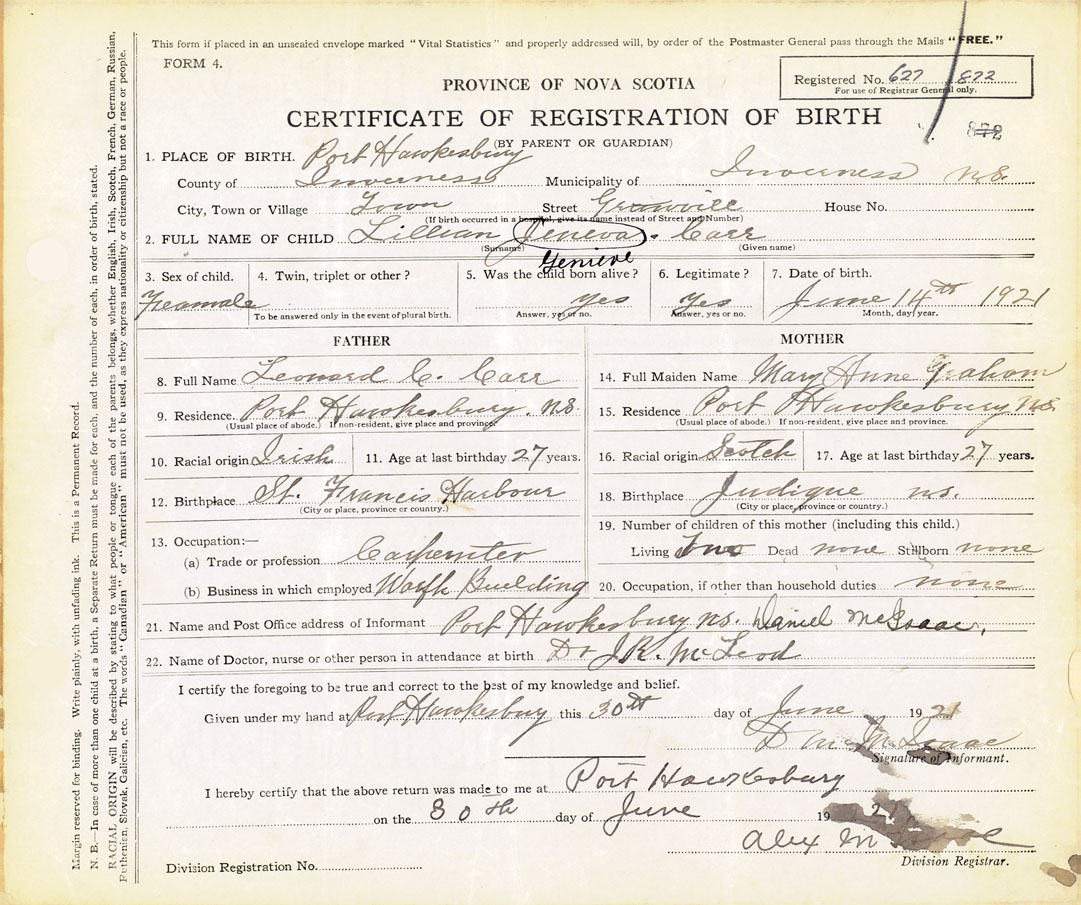 This form if placed in an unsealed envelope marked "Vital Statistics" and properly addressed will, by order of the Postmaster General pass through the Mails "FREE."
FORM 4.
Registered No. 627 / 872
For use of Registrar General only.
PROVINCE OF NOVA SCOTIA
CERTIFICATE OF REGISTRATION OF BIRTH
872
(BY PARENT OR GUARDIAN)
1. PLACE OF BIRTH. Port Hawkesbury
County of Inverness Municipality of Inverness N.S.
City, Town or Village Town Street Granville House No.
(If birth occurred in a hospital, give its name instead of Street and Number)
2. FULL NAME OF CHILD Lillian Jeneva. Carr
(Surname) (Given name)
Genieve
3. Sex of child. 4. Twin, triplet or other? 5. Was the child born alive? 6. Legitimate? 7. Date of birth.
Feamale yes Yes June 14th 1921
To be answered only in the event of plural birth. Answer, yes or no. Answer, yes or no. Month, day, year.
FATHER
8. Full Name Leonard C. Carr
9. Residence. Port Hawkesbury. N.S.
(Usual place of abode.) If non-resident, give place and province.
10. Racial origin Irish 11. Age at last birthday 27 years.
12. Birthplace St. Francis Harbour
(City or place, province or country.)
13. Occupation:—
(a) Trade or profession Carpernter
(b) Business in which employed Warfh Buelding
MOTHER
14. Full Maiden Name Mary Anne Graham
15. Residence Port Hawkesbury N.S.
(Usual place of abode.) If non-resident, give place and province.
16. Racial origin Scotch 17. Age at last birthday 27 years.
18. Birthplace Judique ns.
(City or place, province or country.)
19. Number of children of this mother (including this child.)
Living Dead none Stillborn none
20. Occupation, if other than household duties none
21. Name and Post Office address of Informant Port Hawkesbury ns. Daniel McIsaac,
22. Name of Doctor, nurse or other person in attendance at birth Dr J.R. McLeod
I certify the foregoing to be true and correct to the best of my knowledge and belief.
Given under my hand at Port Hawkesbury this 30th day of June 1921
D McIsaac
Signature of Informant.
I hereby certify that the above return was made to me at Port Hawkesbury
on the 30th day of June 1921
Alex M
Division Registrar.
Division Registration No.
Margin reserved for binding. Write plainly, with unfading ink. This is a Permanent Record.
N. B.—In case of more than one child at a birth, a Separate Return must be made for each, and the number of each, in order of birth, stated.
RACIAL ORIGIN will be described by stating to what people or tongue each of the parents belongs, whether English, Irish, Scotch, French, German, Russian,
Ruthenian, Slovak, Galician, etc. The words "Canadian" or "American" must not be used, as they express nationality or citizenship but not a race or people.